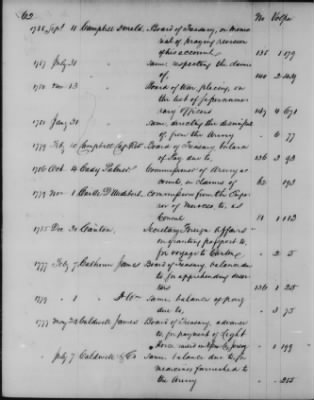 62
No Vol Pa
1788 Sept 11 Campbell Donald, Board of Treasury, on memo
rial of praying revision
of his account 138 1 179
1787 July 31 same respecting the claim
of, 140 2
1780 Nov 13 Board of War, placing, on
the list of supernumer
ary officers 147 4 671
1781 Jany 31 same, directing the dismissal
of, from the Army - 6 77
1779 Feby 10 Campbell Board of Treasury balance
of Pay due to, 136 3 98
1786 Oct 4 Cady Palmer Commissioner of Army ac
counts, on claims of 62 193
1779 Nov 1 Commission from the Empe
ror of Morocco, to, as
Consul 11 1 113
1785 Dec 30 Canton, Secretary Foreign Affairs
on granting passport to,
for voyage to Canton - 2 5
1777 Feby 7 Calhoun James Board of Treasury balance due
to, for apprehending deser
ters 136 1 25
1779 " 1 Same balance of pay
due to, - 3 75
1777 May 22 Caldwell James Board of Treasury, advance
to, for payment of Light
Horse Jersey - 1 199
July 7 Caldwell & Co Same balance due to for
medicines furnished to
the Army - 255